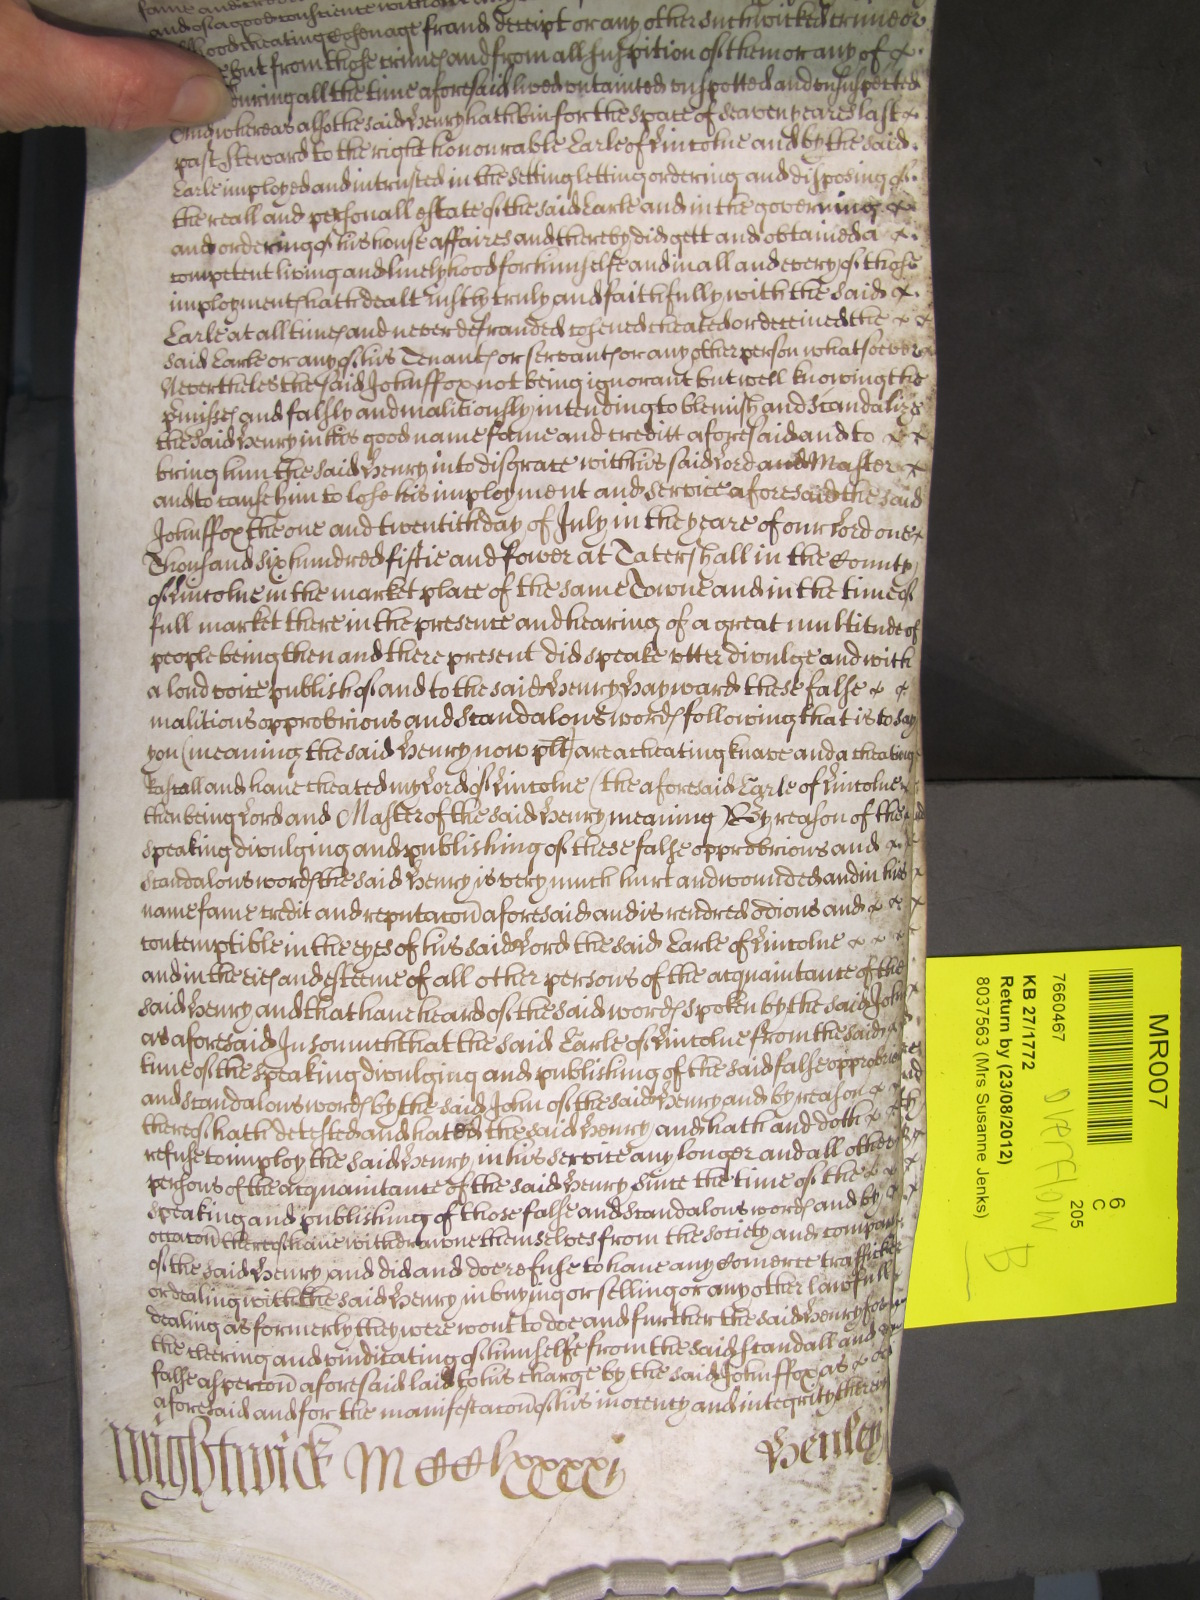 same and
and of a good conscience without
falshood cheating Cosenage fraud deceipt or any other such wicked crime or
but from those crimes and from all suspition of them or any of
during all the time aforesaid lived untainted unspotted and unsuspected
And whereas alsoe the said Henry hath bin for the space of seaven yeares last
past Steward to the right honourable Earle of Lincolne and by the said
Earle imployed and intrusted in the setting letting ordering and disposing of
the reall and personall estate of the said Earle and in the governing
and ordering of his house affaires and thereby did gett and obtained a
competent living and livelyhood for himselfe and in all and every of those
imployments hath dealt Justly truly and faithfully with the said
Earle at all times and never defrauded cosened cheated or deceived the
said Earle or any of his Tenants or servants or any other person whatsoever
Neverthelesse the said John ffox not being ignorant but well knowing the
pmisses and falsly and malitiously intending to blemish and scandalize
the said Henry in his good name fame and creditt aforesaid and to
bring him the said Henry into disgrace with his said Lord and Master
and to cause him to lose his imployment and service aforesaid the said
John ffox the one and twentith day of July in the yeare of our Lord one
Thousand six hundred fiftie and fower at Tatershall in the County
of Lincolne in the market place of the same Towne and in the time of
full market there in the presence and hearing of a great multitude of
people being then and there present did speake utter divulge and with
a loud voice publish of and to the said Henry Hayward these false
malitious opprobrious and scandalous words following that is to say
you (meaning the said Henry now plt) are a cheating knave and a cheating
Rascall and have cheated my Lord of Lincolne (the aforesaid Earle of Lincolne
then being Lord and Master of the said Henry meaning) By reason of the
speaking divulging and publishing of these false opprobrious and
scandalous words the said Henry is very much hurt and wounded and in his
name fame credit and reputacon aforesaid and is rendred odious and
contemptible in the eyes of his said Lord the said Earle of Lincolne
and in the eies and esteeme of all other persons of the acquaintance of the
said Henry and that have heard of the said words spoken by the said John
as aforesaid In somuch that the said Earle of Lincolne from the said
time of the speaking divulging and publishing of the said false opprobrious
and scandalous words by the said John of the said Henry and by reason
thereof hath detested and hated the said Henry and hath and doth
refuse to imploy the said Henry in his service any longer and all other
persons of the acquaintance of the said Henry since the time of the
speaking and publishing of those false and scandalous words and by
occacon thereof have withdrawne themselves from the society and company
of the said Henry and did and doe refuse to have any Comerce trafficke
or dealing with the said Henry in buying or selling or any other lawfull
dealing as formerly they were wont to doe and further the said Henry for
the cleering and vindicating of himselfe from the said scandall and
false aspercon aforesaid laid to his charge by the said John ffox as
aforesaid and for the manifestacon of his inocency and integrity therein
Wightwick MCClxxxxj Henley
MR007
6
C
205
7660467
KB 27/1772
Return by (23/08/2012)
8037563 (Mrs Susanne Jenks)
overflow
B